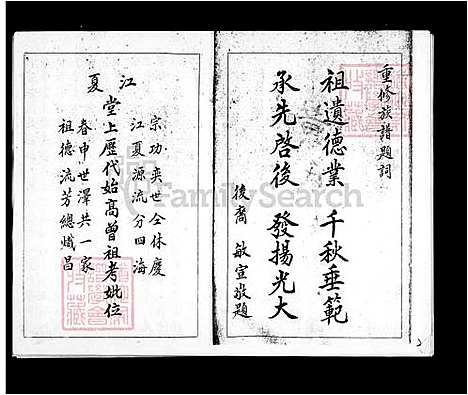 重修族譜題詞
祖遺德業 千秋垂範
承先啓後 發揚光大
後裔 敏宣敬題
江夏
宗功奕世仝休慶
江夏源流分四海
堂上歷代始高曾祖考妣位
春申世澤共一家
祖德流芳總熾昌
FamilySearch